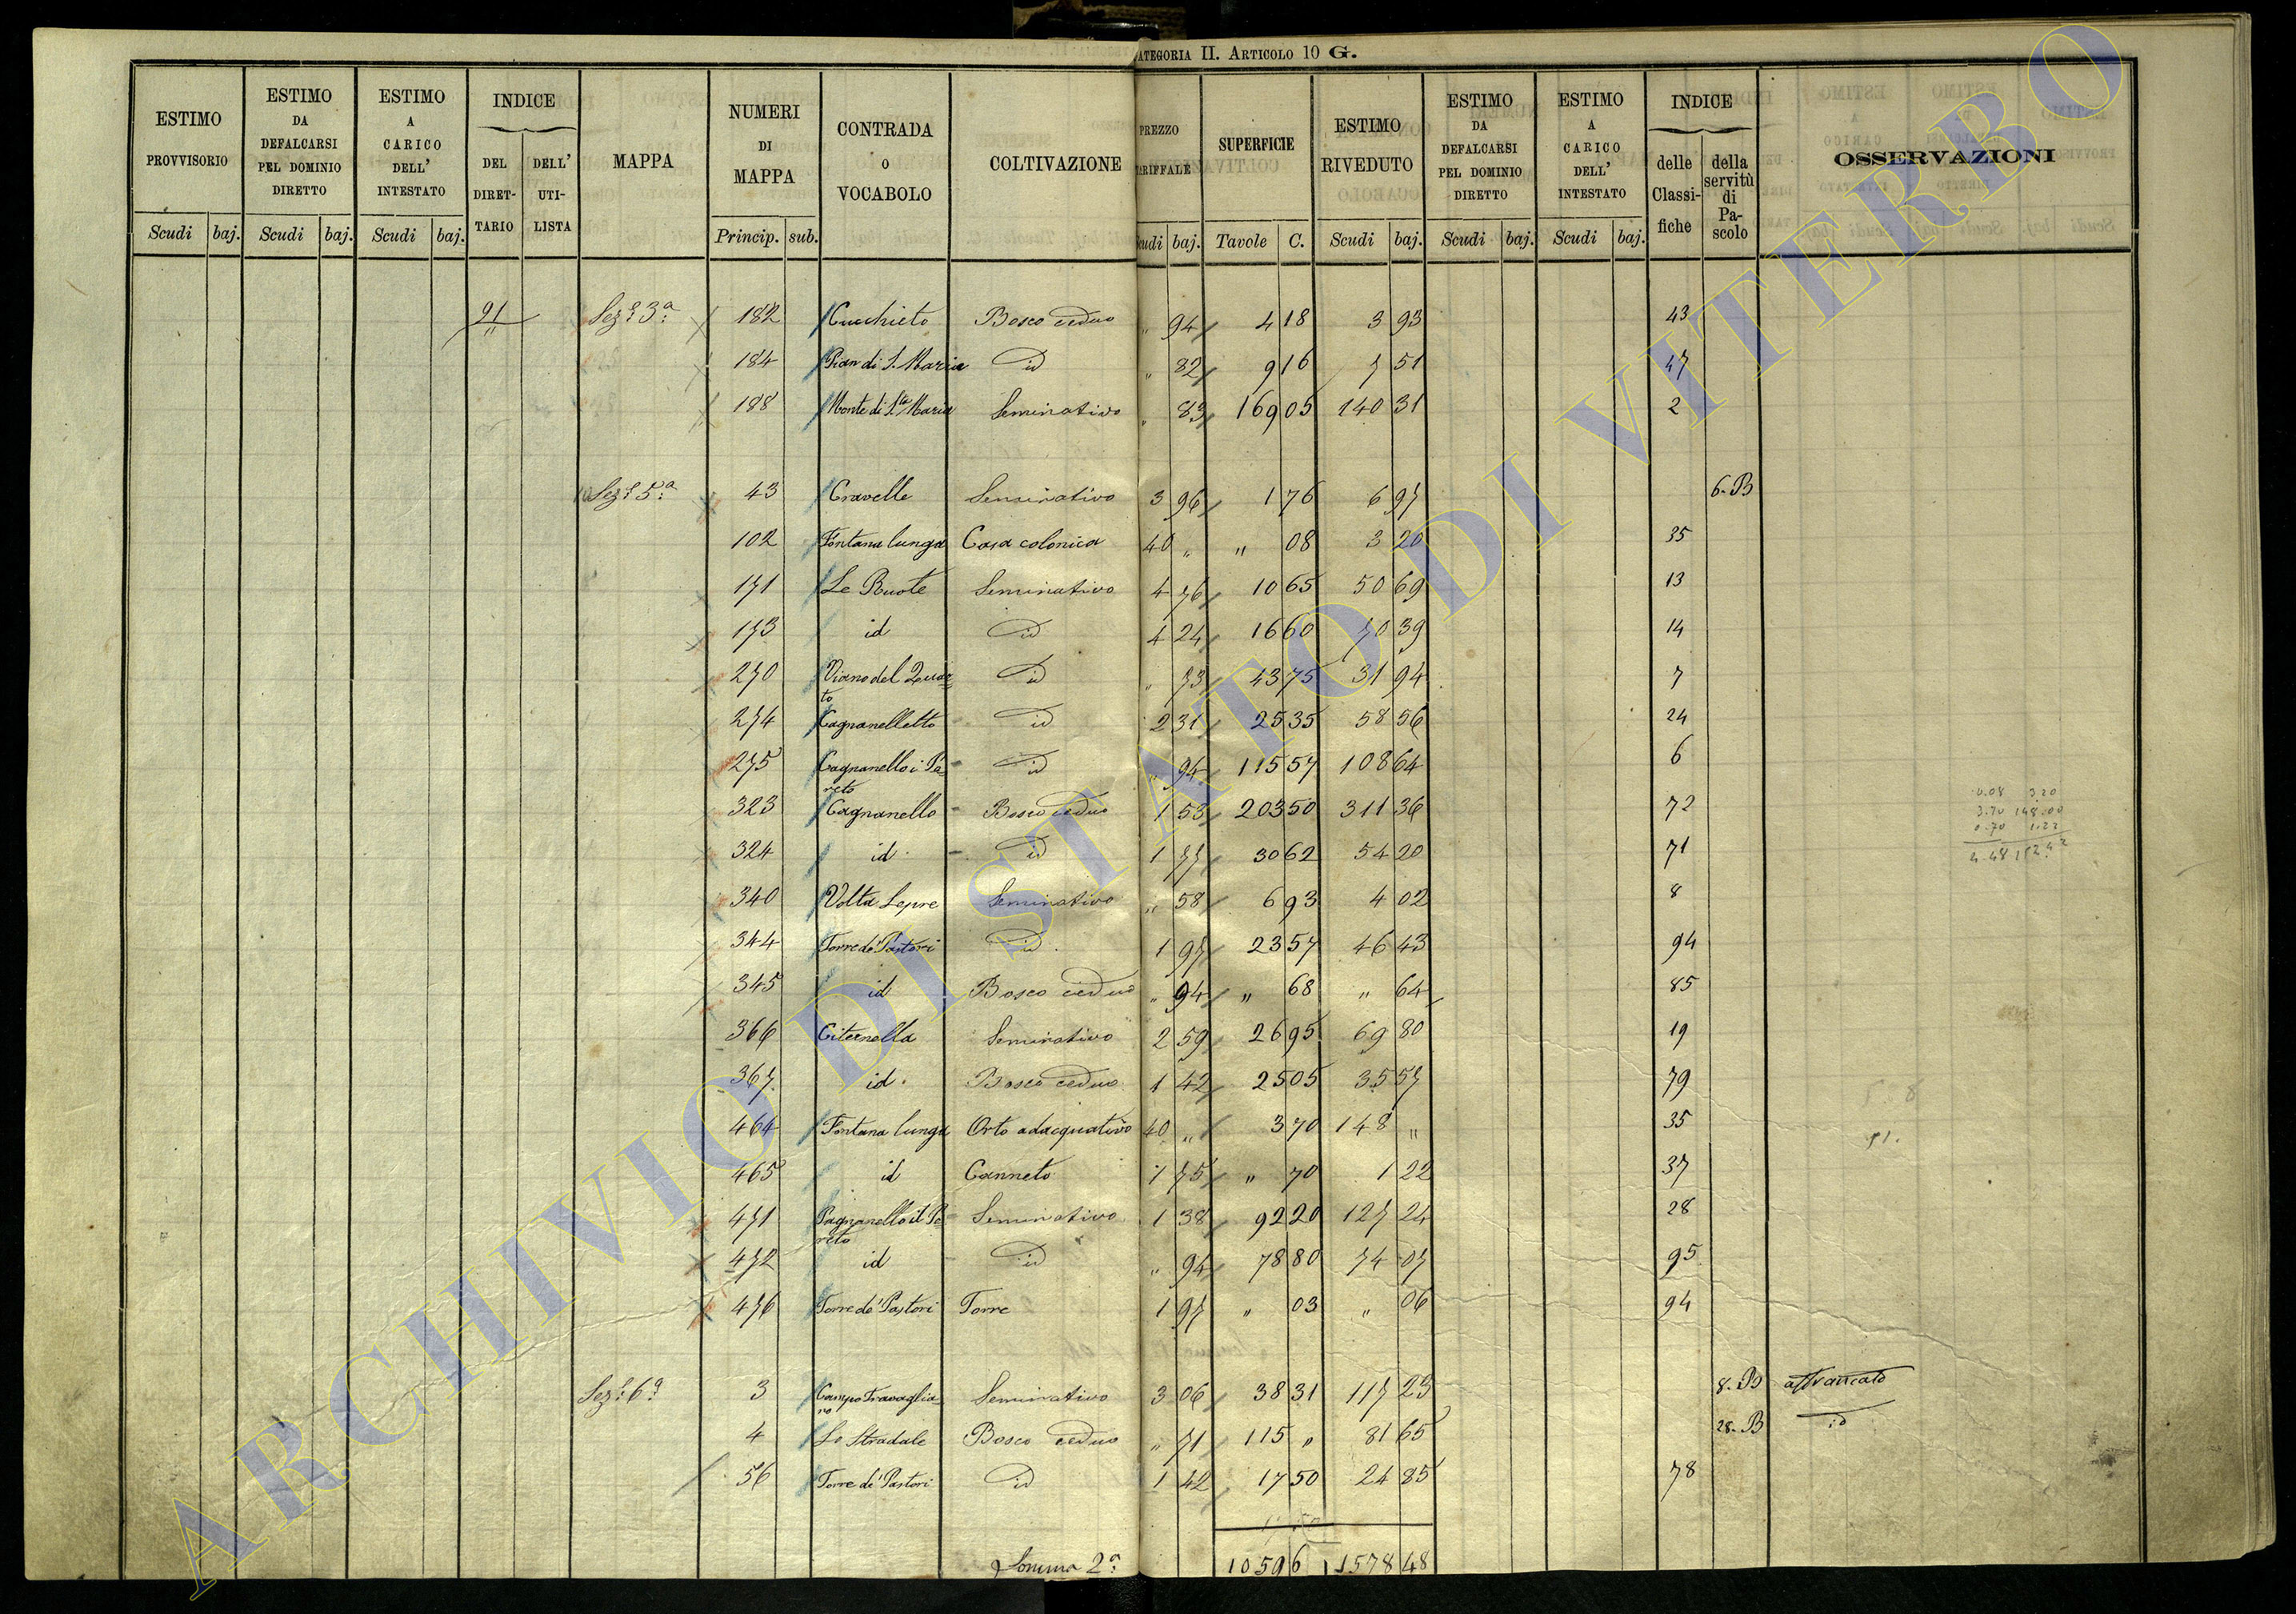 CATEGORIA II. ARTICOLO 10 G.
ESTIMO PROVVISORIO Scudi baj. ESTIMO DA DEFALCARSI PEL DOMINIO DIRETTO Scudi baj. ESTIMO A CARICO DELL' INTESTATO Scudi baj. INDICE DEL DIRETTARIO DELL' UTILISTA MAPPA NUMERI DI MAPPA Princip. sub. CONTRADA O VOCABOLO COLTIVAZIONE PREZZO TARIFFALE Scudi baj. SUPERFICIE Tavole C. ESTIMO RIVEDUTO Scudi baj. ESTIMO DA DEFALCARSI PEL DOMINIO DIRETTO Scudi baj. ESTIMO A CARICO DELL' INTESTATO Scudi baj. INDICE delle Classifiche della servitù di Pascolo OSSERVAZIONI
21 Sez.e 3a 182 Cucchieto Bosco ceduo " 94 4 18 3 93 43
184 Pian di S. Maria id " 82 9 16 7 51 47
188 Monte di Sta Maria Seminativo " 83 169 05 140 31 2
Sez.e 5a 43 Cravelle Seminativo 3 96 1 76 6 97 6.B
102 Fontana lunga Casa colonica 40 " " 08 3 20 35
171 Le Ruote Seminativo 4 76 10 65 50 69 13
173 id id 4 24 16 60 70 39 14
270 Viano del Quarto id " 73 43 75 31 94 7
274 Cagnanelletto id 2 31 25 35 58 56 24
275 Cagnanello i Pereto id " 94 115 57 108 64 6
323 Cagnanello Bosco ceduo 1 53 203 50 311 36 72
324 id id 1 77 30 62 54 20 71
340 Volta Lepre Seminativo " 58 6 93 4 02 8
344 Torre de' Pastori id 1 97 23 57 46 43 94
345 id Bosco ceduo " 94 " 68 " 64 85
366 Citernella Seminativo 2 59 26 95 69 80 19
367 id. Bosco ceduo 1 42 25 05 35 57 79
464 Fontana lunga Orto adacquativo 40 " 3 70 148 " 35
465 id Canneto 1 75 " 70 1 22 37
471 Pagnanello il Pereto Seminativo 1 38 92 20 127 24 28
472 id id " 94 78 80 74 07 95
476 Torre de' Pastori Torre 1 97 " 03 " 06 94
Sez.e 6a 3 Campo Travagliano Seminativo 3 06 38 31 117 23 8.B affrancato
4 Lo Stradale Bosco ceduo " 71 115 " 81 65 28.B id
56 Torre de' Pastori id 1 42 17 50 24 85 78
Somma 2a 1059 6 1578 48
0.08 3.20
3.70 148.00
0.70 1.22
4.48 152.42
ARCHIVIO DI STATO DI VITERBO